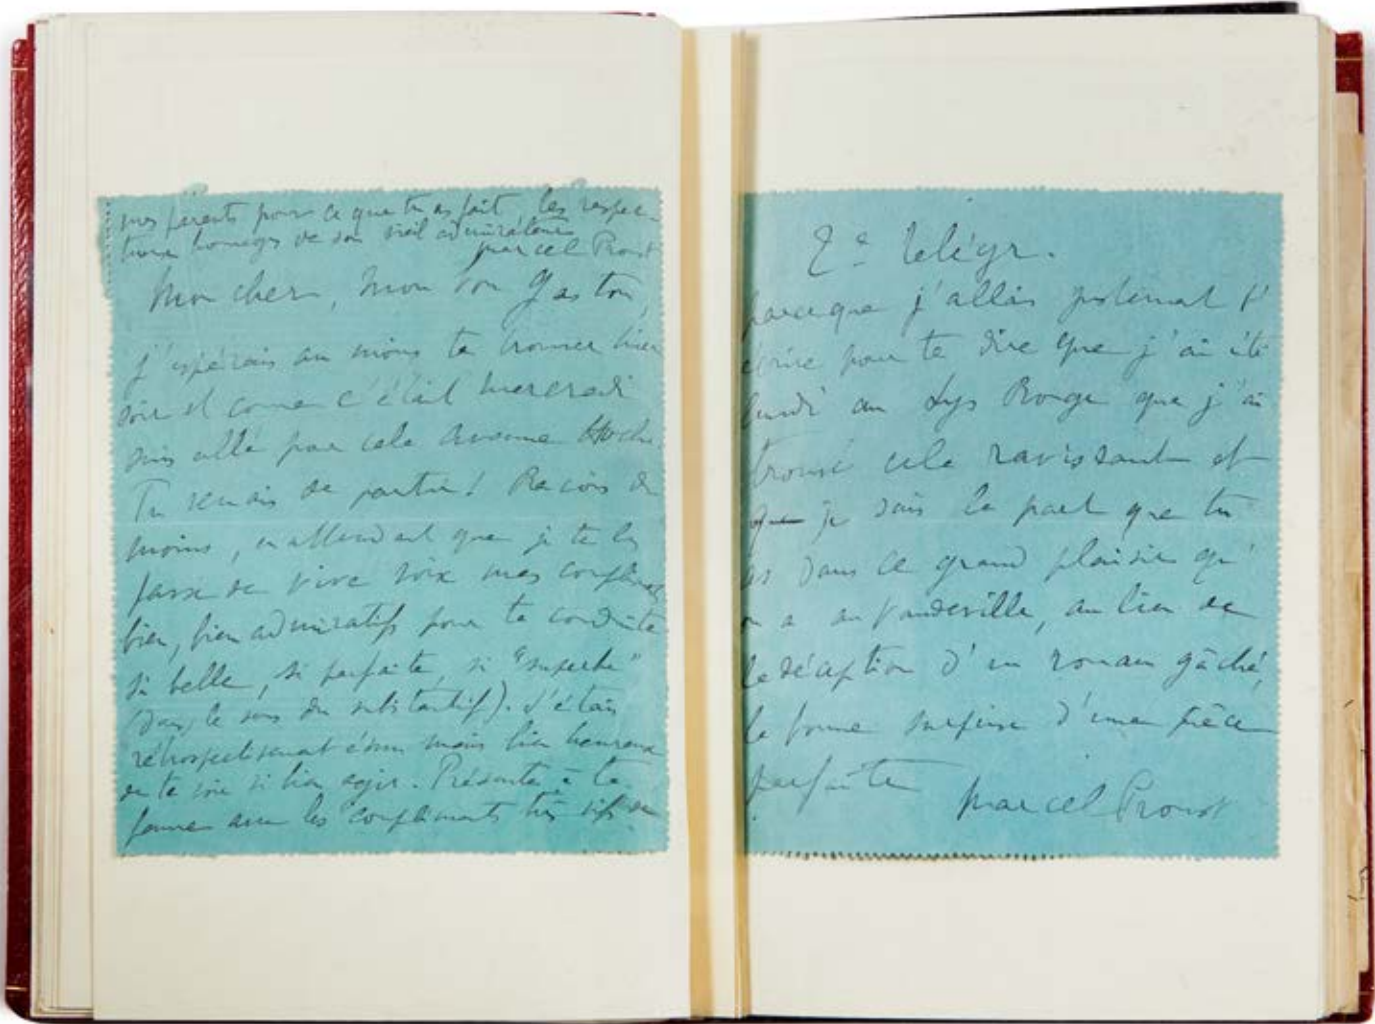 mes parents pour ce que tu as fait, les respec-
tueux homages de son vieil admirateur
Marcel Proust
Mon cher, mon bon Gaston,
j'espérais au moins te trouver hier
soir et come c'était Mercredi
suis allé pour cela Avenue Hoche.
Tu venais de partir! Recois du
moins, en attendant que je te les
fasse de vive voix mes compliments
bien, bien admiratifs pour ta conduite
si belle, si parfaite, si "superbe"
(dans le sens du substantif). J'étais
rétrospectivement ému mais bien heureux
de te voir si bien agir. Présente à ta
femme avec les compliments très vifs de
2e télégr.
parceque j'allais justement t'
écrire pour te dire que j'ai été
lundi au Lys Rouge que j'ai
trouvé cela ravissant et
que je sais la part que tu
as dans ce grand plaisir qu'
on a au Vaudeville, au lieu de
la déception d'un roman gâché,
la bonne surprise d'une pièce
parfaite
Marcel Proust